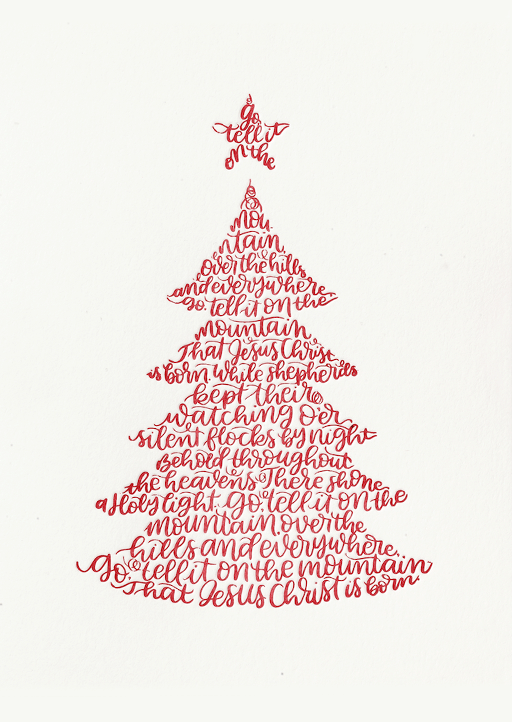 go,
tell it
on the
mou
ntain,
over the hills
and everywhere
go, tell it on the
mountain
That Jesus Christ
is born. While shepherds
kept their
watching o'er
silent flocks by night
Behold throughout
the heavens There shone
a Holy light. Go, tell it on the
mountain, over the
hills and everywhere.
Go, tell it on the mountain
That Jesus Christ is born.